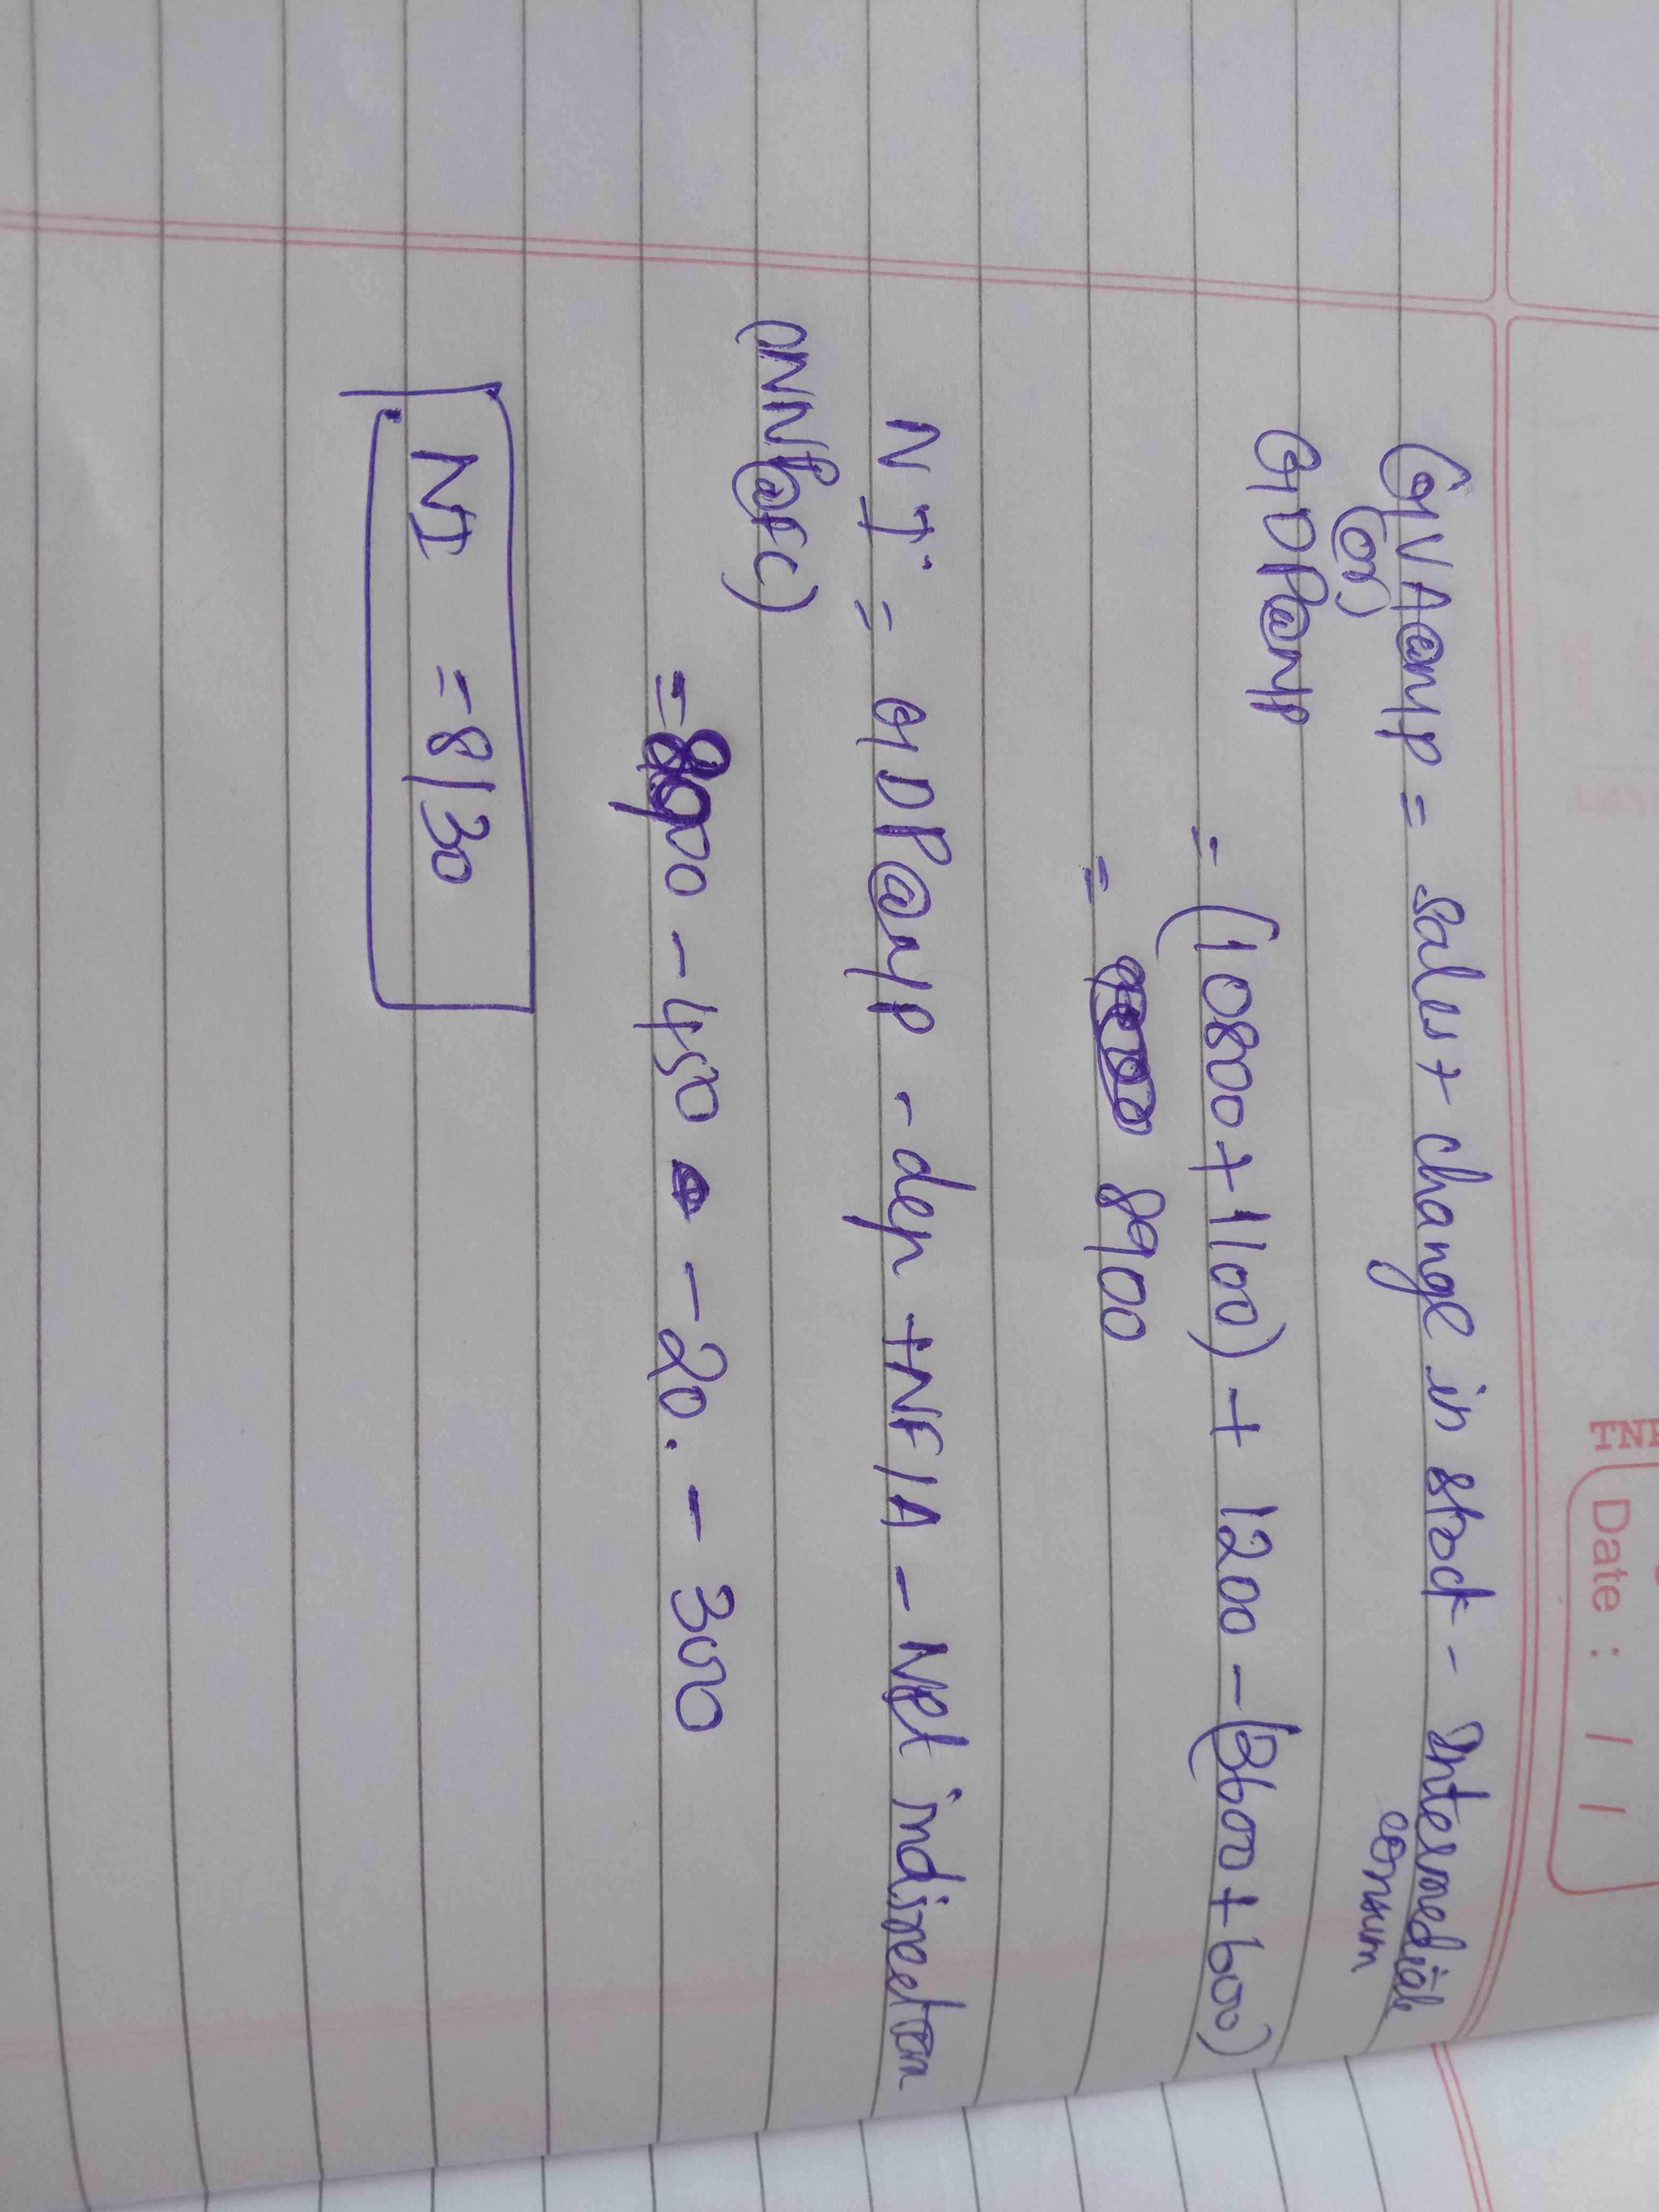 Date : / /
GVA@MP = Sales + change in stock - Intermediate
consum
(or)
GDP@MP
= (10800 + 1100) + 1200 - (3600 + 600)
= 8900
NI = GDP@MP - dep + NFIA - Net indirect tax
(NNP@FC)
= 8900 - 450 - 20. - 300
NI = 8130